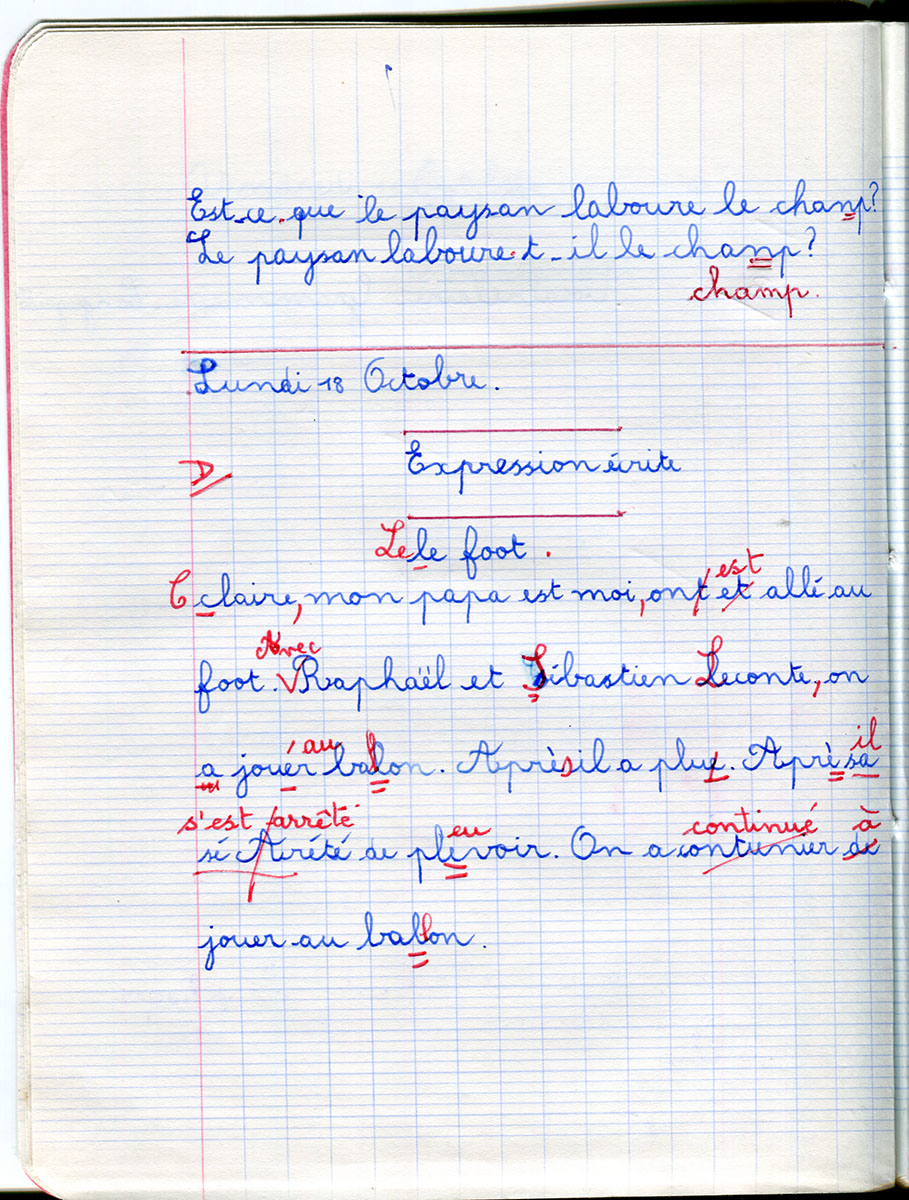 Est-ce.que le paysan laboure le chanp?
Le paysan laboure.t-il le chanp?
champ.
Lundi 18 Octobre.
D Expression écrite
Le le foot.
C claire, mon papa est moi, ont et est allé au
foot. Avec Raphaël et Sébastien Leconte, on
a jouer au ballon. Après il a plut. Après sa il
s'est arrêté
sé Arrété de plevoir. eu On a contunier continué de à
jouer au ballon.